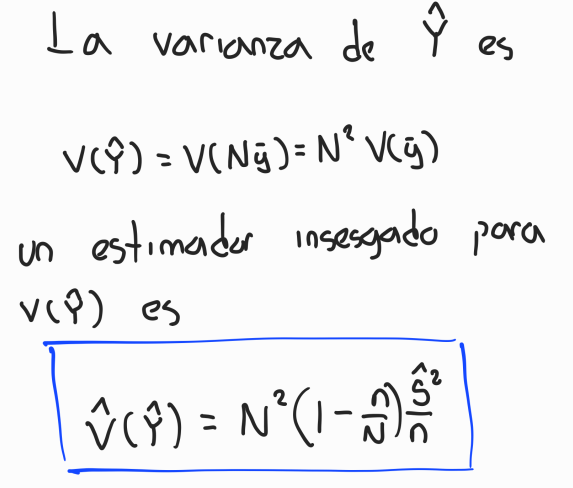 La varianza de Ŷ es
V(Ŷ) = V(Nȳ) = N² V(ȳ)
un estimador insesgado para
V(Ŷ) es
V̂(Ŷ) = N²(1 - n/N) Ŝ²/n